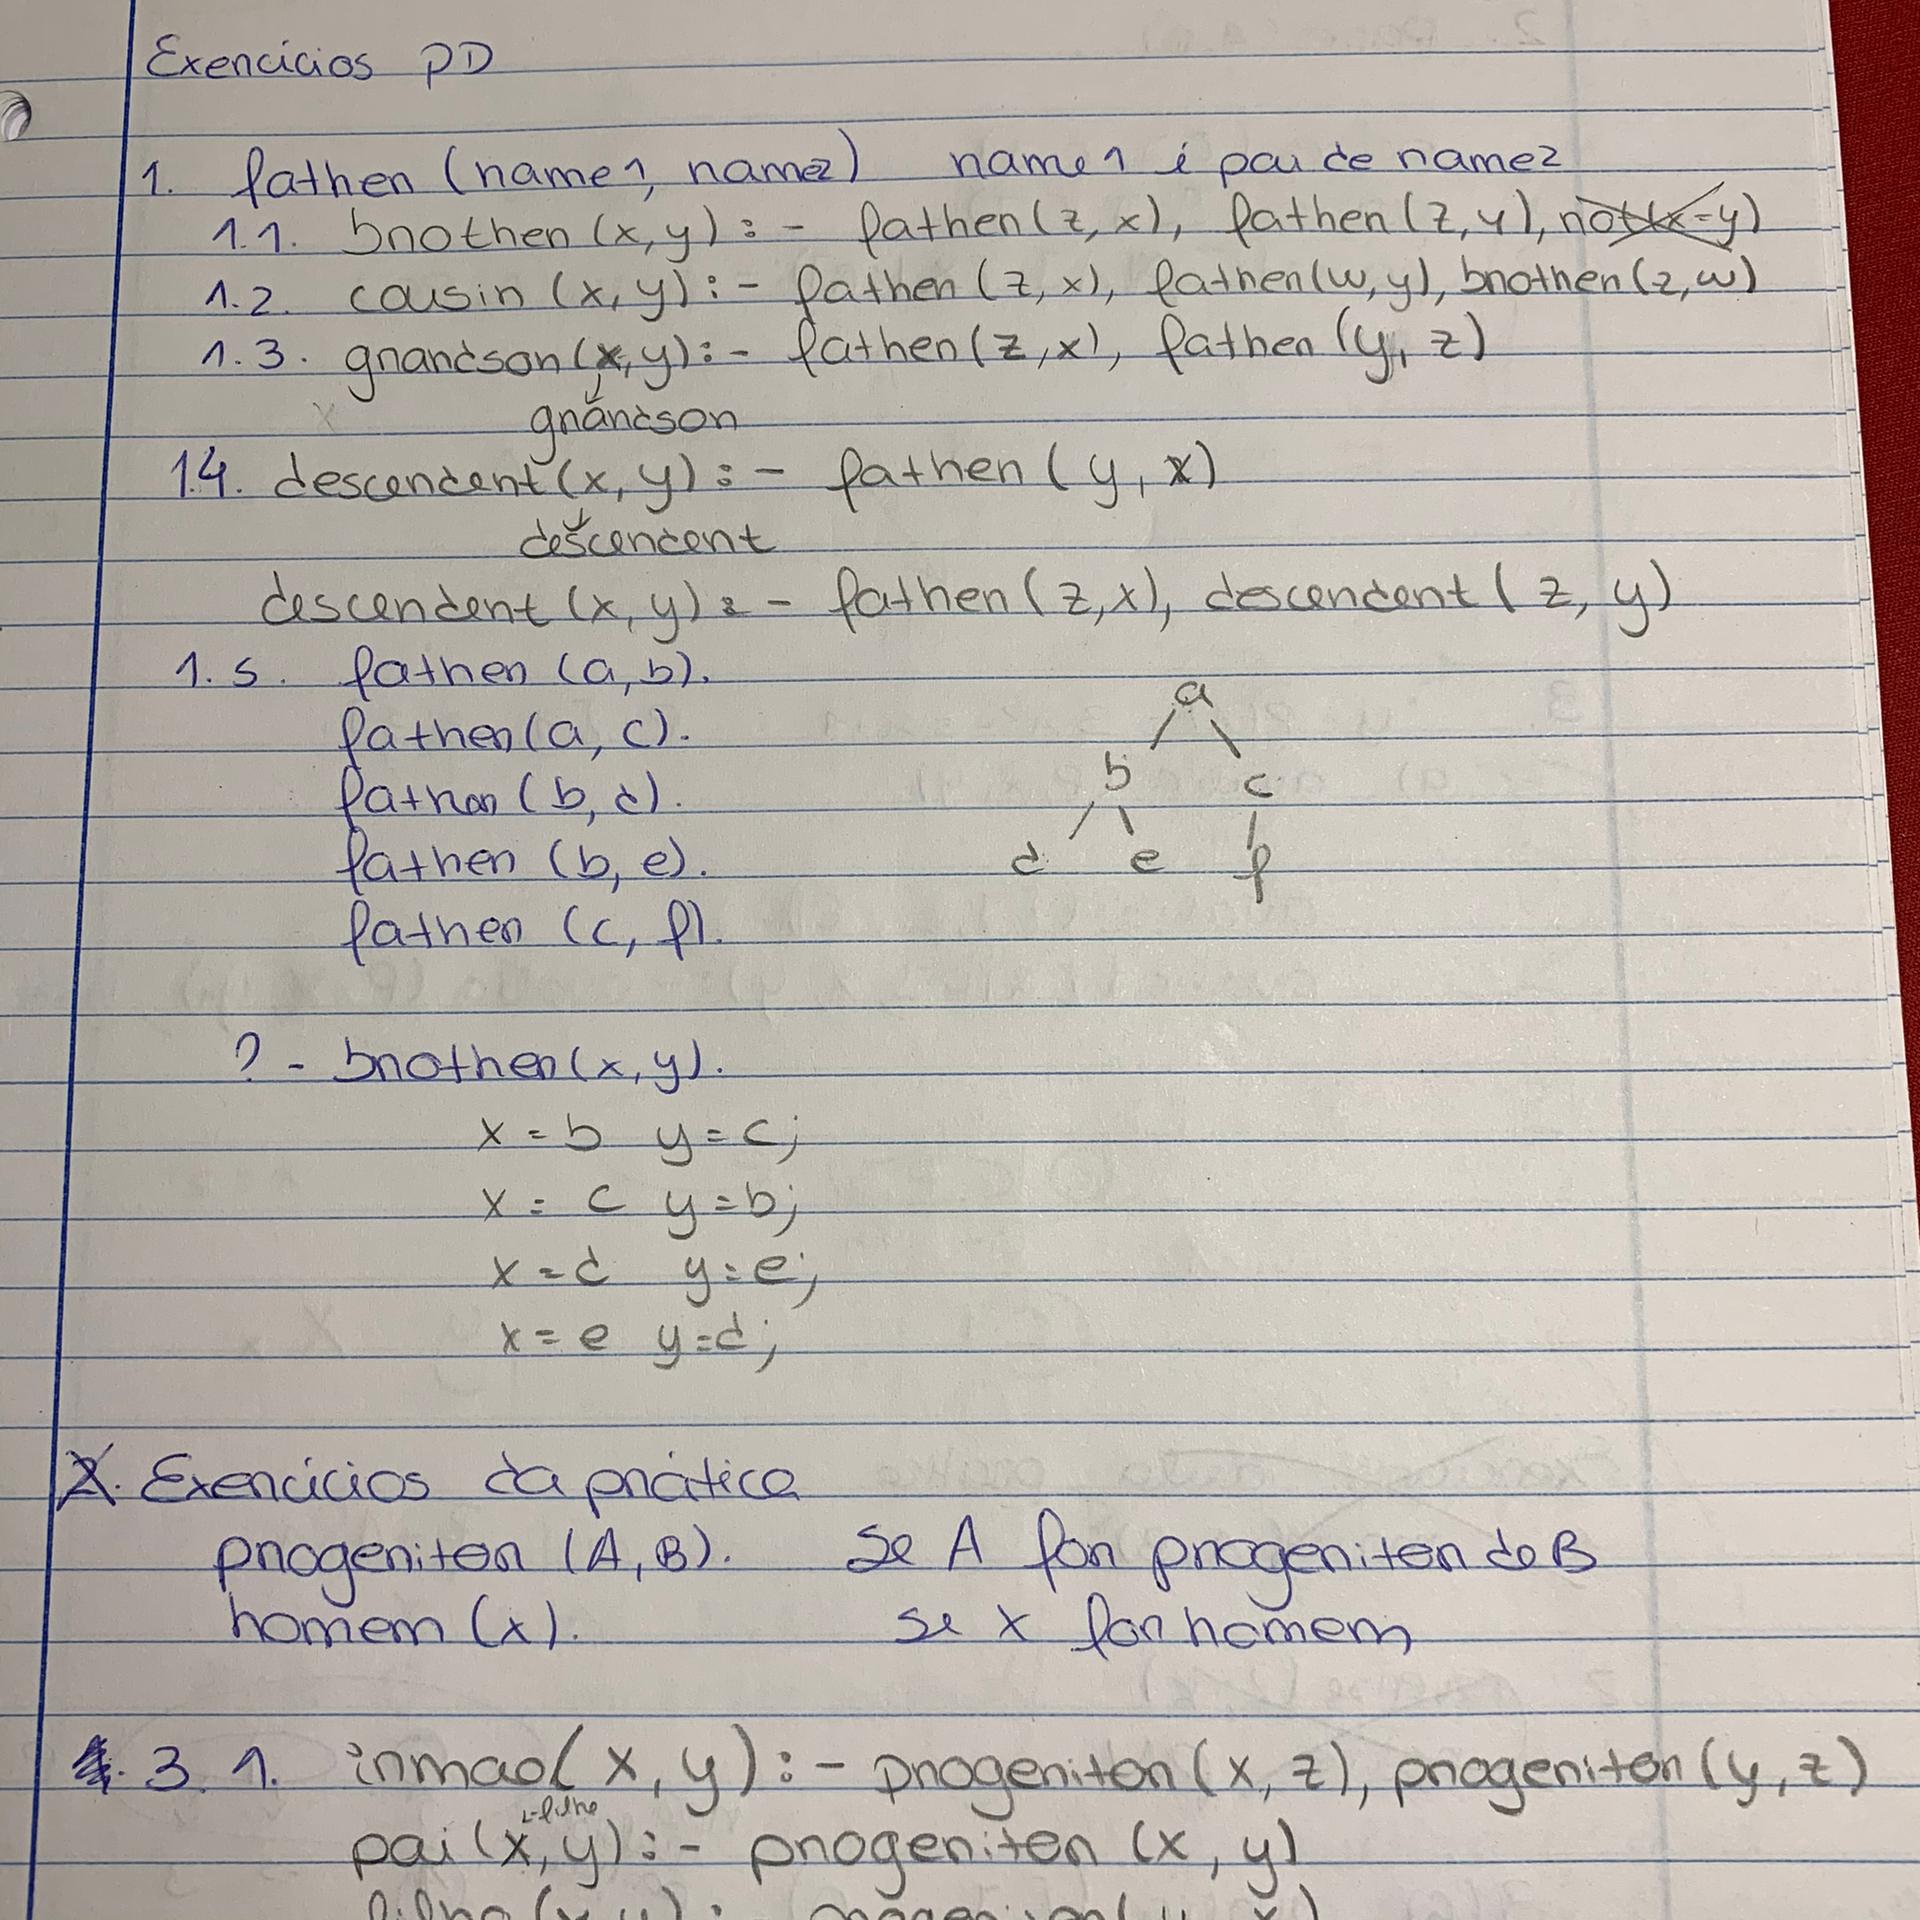 Exercícios PD
1. father (name1, name2) name1 é pai de name2
1.1. brother (x, y) :- father (z, x), father (z, y), not(x=y)
1.2. cousin (x, y) :- father (z, x), father (w, y), brother (z, w)
1.3. grandson (x, y) :- father (z, x), father (y, z)
grandson
1.4. descendent (x, y) :- father (y, x)
descendent
descendent (x, y) :- father (z, x), descendent (z, y)
1.5. father (a, b).
a
father (a, c).
b c
father (b, d).
father (b, e).
d e f
father (c, f).
?- brother (x, y).
x = b y = c;
x = c y = b;
x = d y = e;
x = e y = d;
2. Exercícios da prática
progenitor (A, B). Se A for progenitor de B
homem (x). se x for homem
3.1. irmao( x, y) :- progenitor (x, z), progenitor (y, z)
filho
pai (x, y) :- progenitor (x, y)